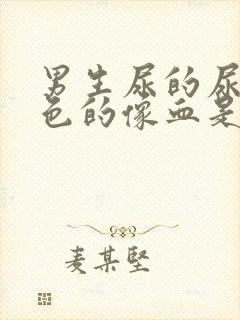 男生尿的尿
色的像血是
麦某坚